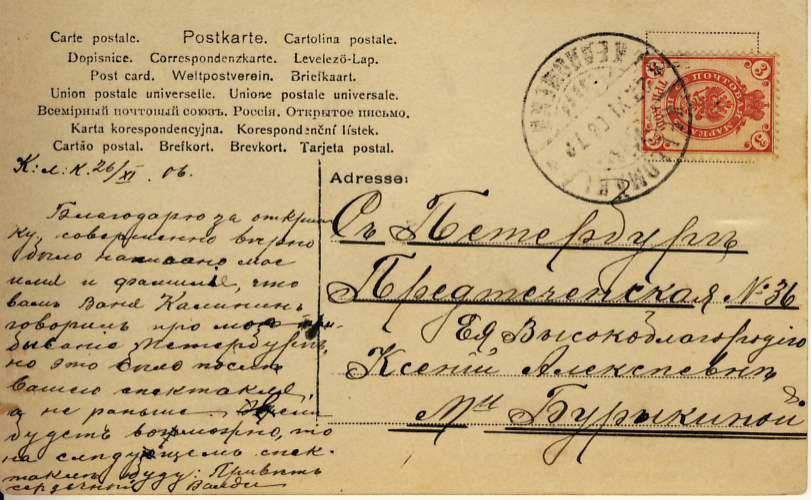 Carte postale. Postkarte. Cartolina postale.
Dopisnice. Correspondenzkarte. Levelező-Lap.
Post card. Weltpostverein. Briefkaart.
Union postale universelle. Unione postale universale.
Всемірный почтовый союзъ. Россія. Открытое письмо.
Karta korespondencyjna. Korespondenční lístek.
Cartão postal. Brefkort. Brevkort. Tarjeta postal.
К: л: к. 26/XI. 06.
Благодарю за открыт-
ку, совершенно вѣрно
было написано мое
имя и фамилія, что
вамъ Ваня Калининъ
говорилъ про мое при-
бываніе Петербургъ,
но это было послѣ
Вашего спектакля,
а не раньше, если
будетъ возможно, то
на слѣдующемъ спек-
таклѣ буду: Привѣтъ
сердечный
Adresse:
Съ Петербургъ
Предтеченская № 36
Ея Высокоблагородію
Ксеніи Алексѣевнѣ
Бурыкиной
3 3
ПОЧТОВАЯ МАРКА
ТРИ КОП.
3 3